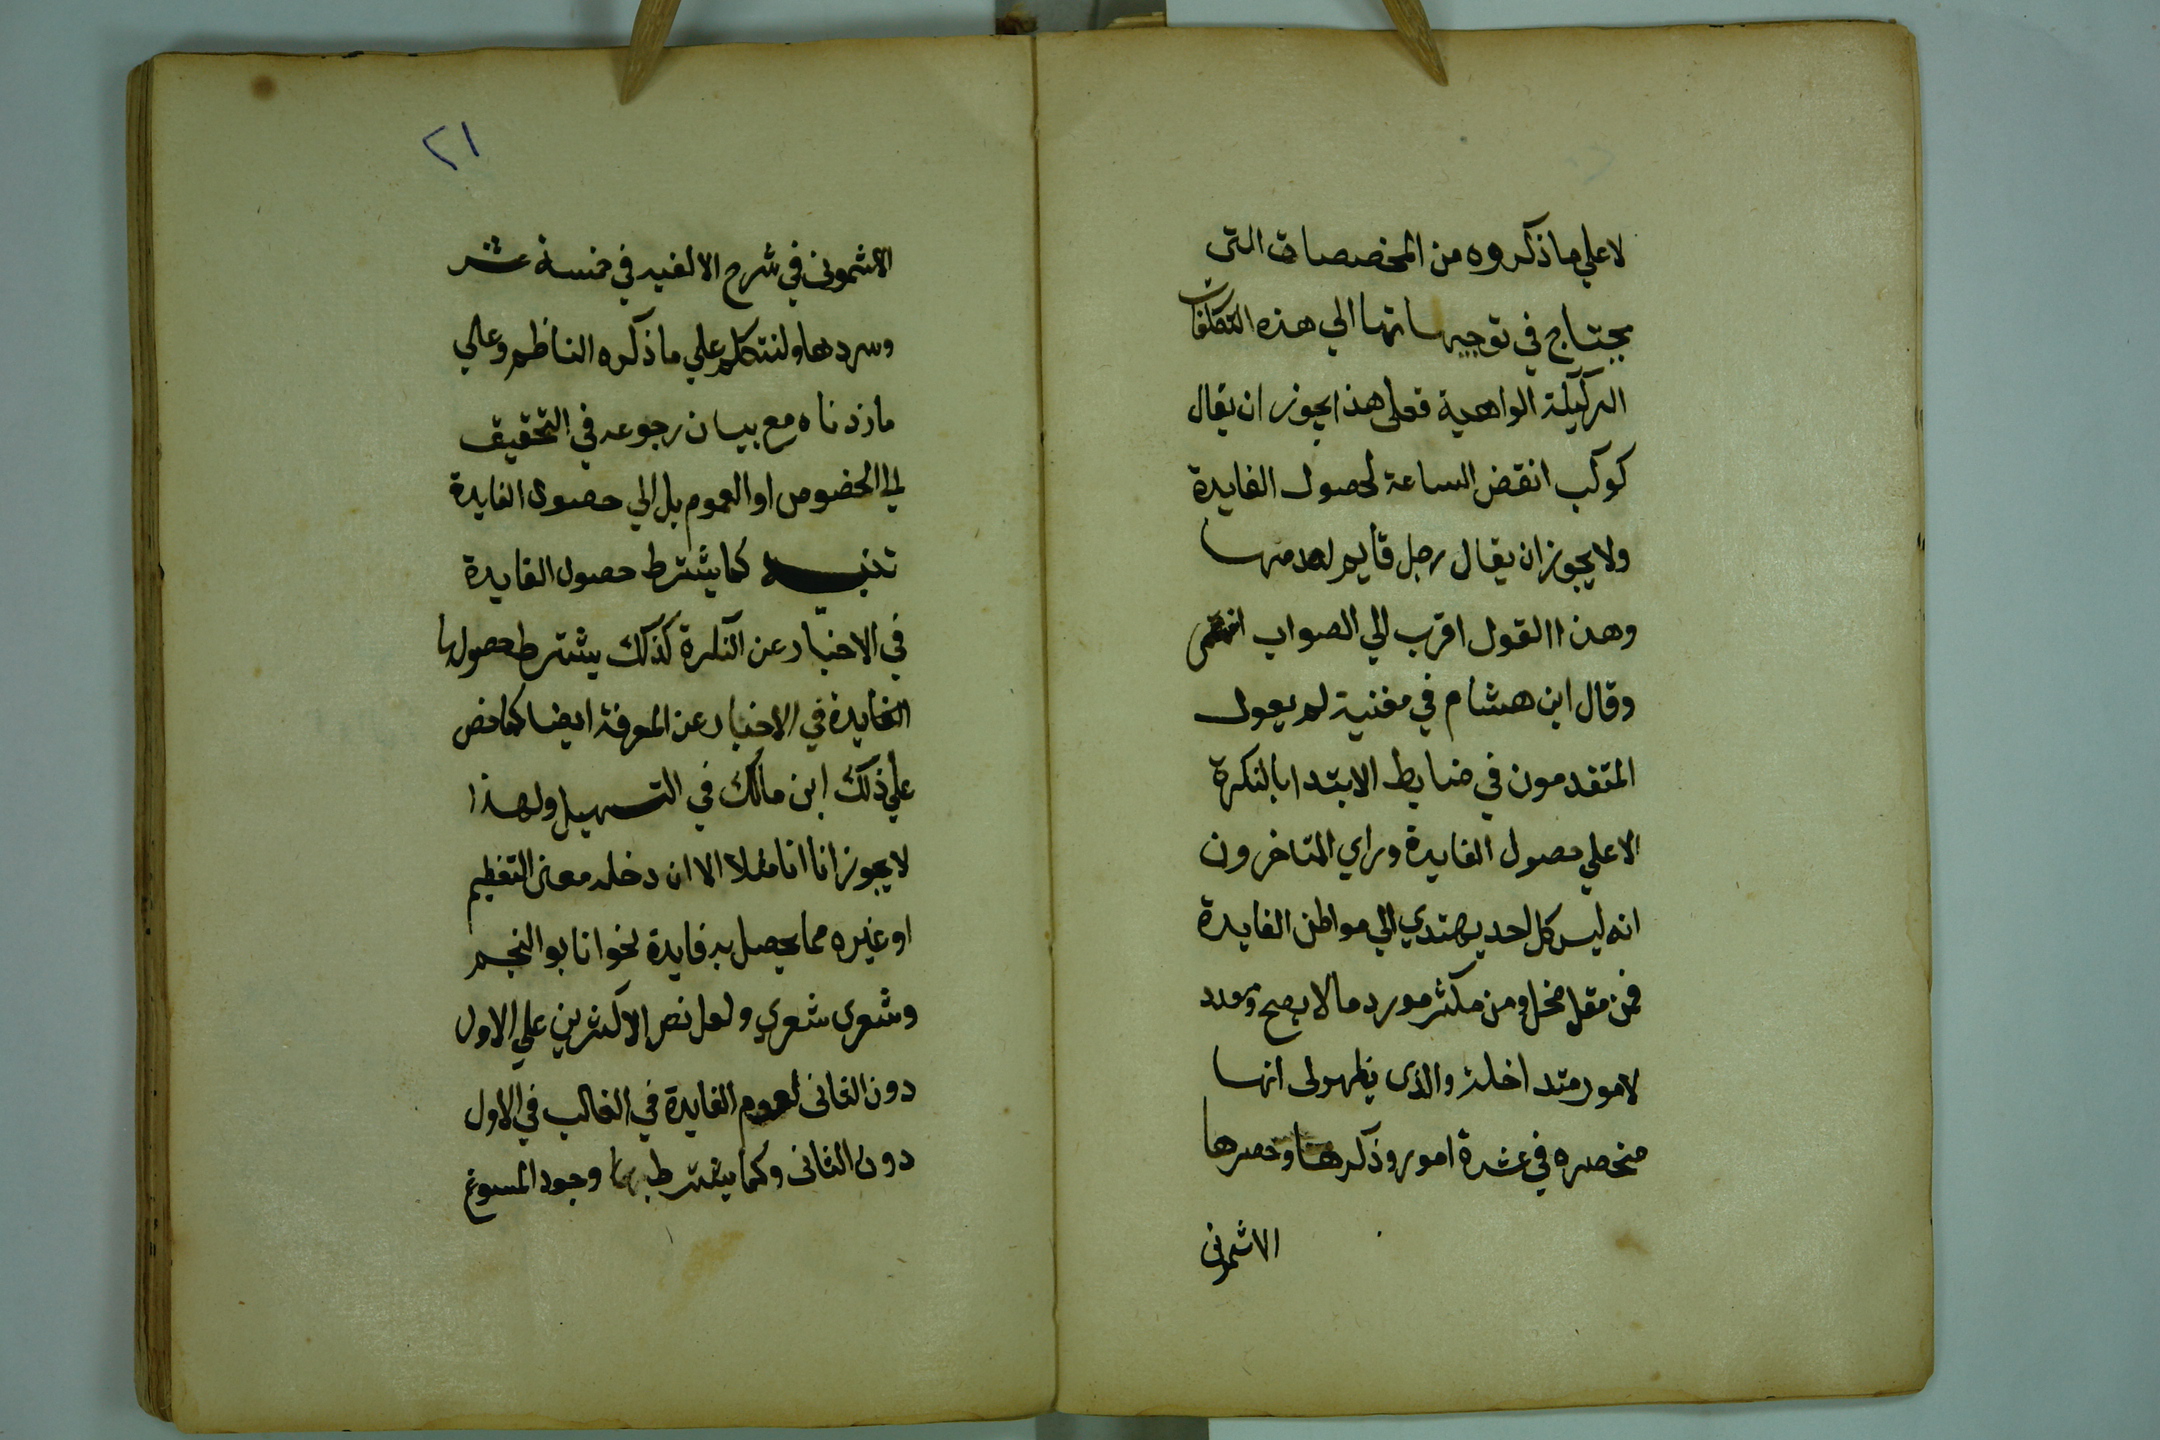 لا على ما ذكروه من المخصصات التى
يحتاج في توجيهاتها الي هذه التكلفات
الركيكة الواهية فعلى هذا يجوز ان يقال
كوكب انقض الساعة لحصول الفايدة
ولا يجوز ان يقال رجل قايم لعدمها
وهذا القول اقرب الي الصواب انتهى
وقال ابن هشام في مغنيه لم يعول
المتقدمون في ضابط الابتدا بالنكرة
الا على حصول الفايدة وراي المتاخرون
انه ليس كل احد يهتدي الي مواطن الفايدة
فمن مقل مخل ومن مكثر مورد مالا يصح ومعدد
لامور متداخلة والذى يظهر لى انها
منحصره في عشرة امور وذكرها وحصرها
الاشمونى
٢١
الاشمونى في شرح الالفيه في خمسة عشر
وسردها ولنتكلم علي ما ذكره الناظم وعلي
ما زدناه مع بيان رجوعه في التحقيق
الي الخصوص او العموم بل الي حصول الفايدة
تنبيه كما يشترط حصول الفايدة
في الاخبار عن النكرة كذلك يشترط حصولها
الفايدة في الاخبار عن المعرفة ايضا كما نص
علي ذلك ابن مالك في التسهيل ولهذا
لا يجوز انا انا مثلا الا ان دخله معنى التعظيم
او غيره مما يحصل به فايدة نحو انا ابو النجم
وشعرى شعري ولعل نص الاكثرين علي الاول
دون الثانى لعدم الفايدة في الغالب في الاول
دون الثانى وكما يشترط وجود المسوغ